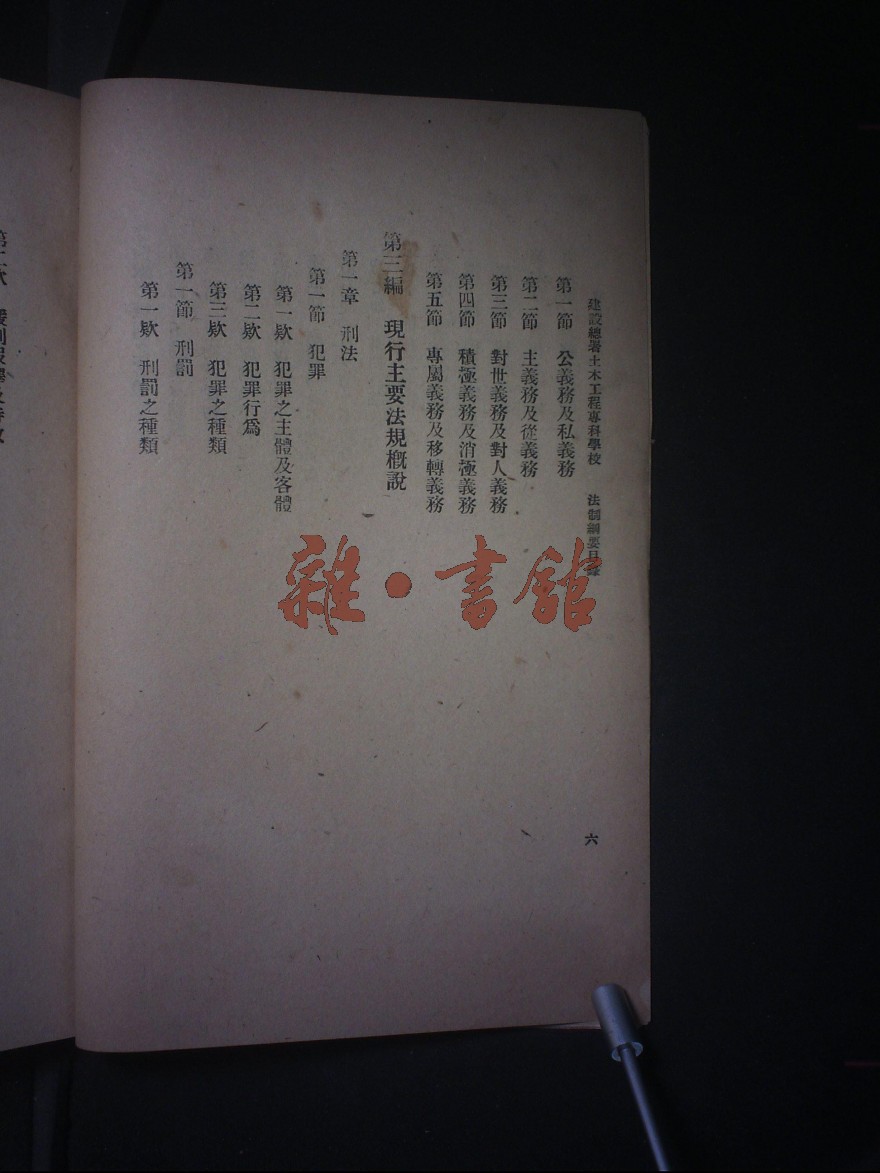 建設總署土木工程專科學校　法制綱要目錄
第一節　公義務及私義務
第二節　主義務及從義務
第三節　對世義務及對人義務
第四節　積極義務及消極義務
第五節　專屬義務及移轉義務
第三編　現行主要法規概說
第一章　刑法
第一節　犯罪
第一欵　犯罪之主體及客體
第二欵　犯罪行為
第三欵　犯罪之種類
第一節　刑罰
第一欵　刑罰之種類
六
雜・書館